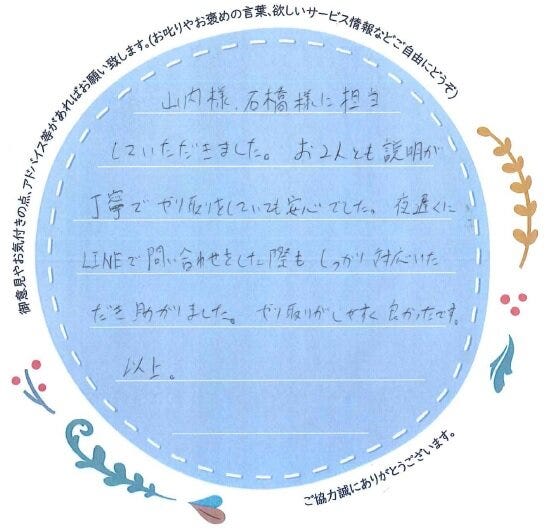 御意見やお気付きの点、アドバイス等があればお願い致します。(お叱りやお褒めの言葉、欲しいサービス情報などご自由にどうぞ)
山内様、石橋様に担当
していただきました。お2人とも説明が
丁寧でやり取りをしていても安心でした。夜遅くに
LINEで問い合わせをした際もしっかり対応いた
だき助かりました。やり取りがしやすく良かったです。
以上。
ご協力誠にありがとうございます。